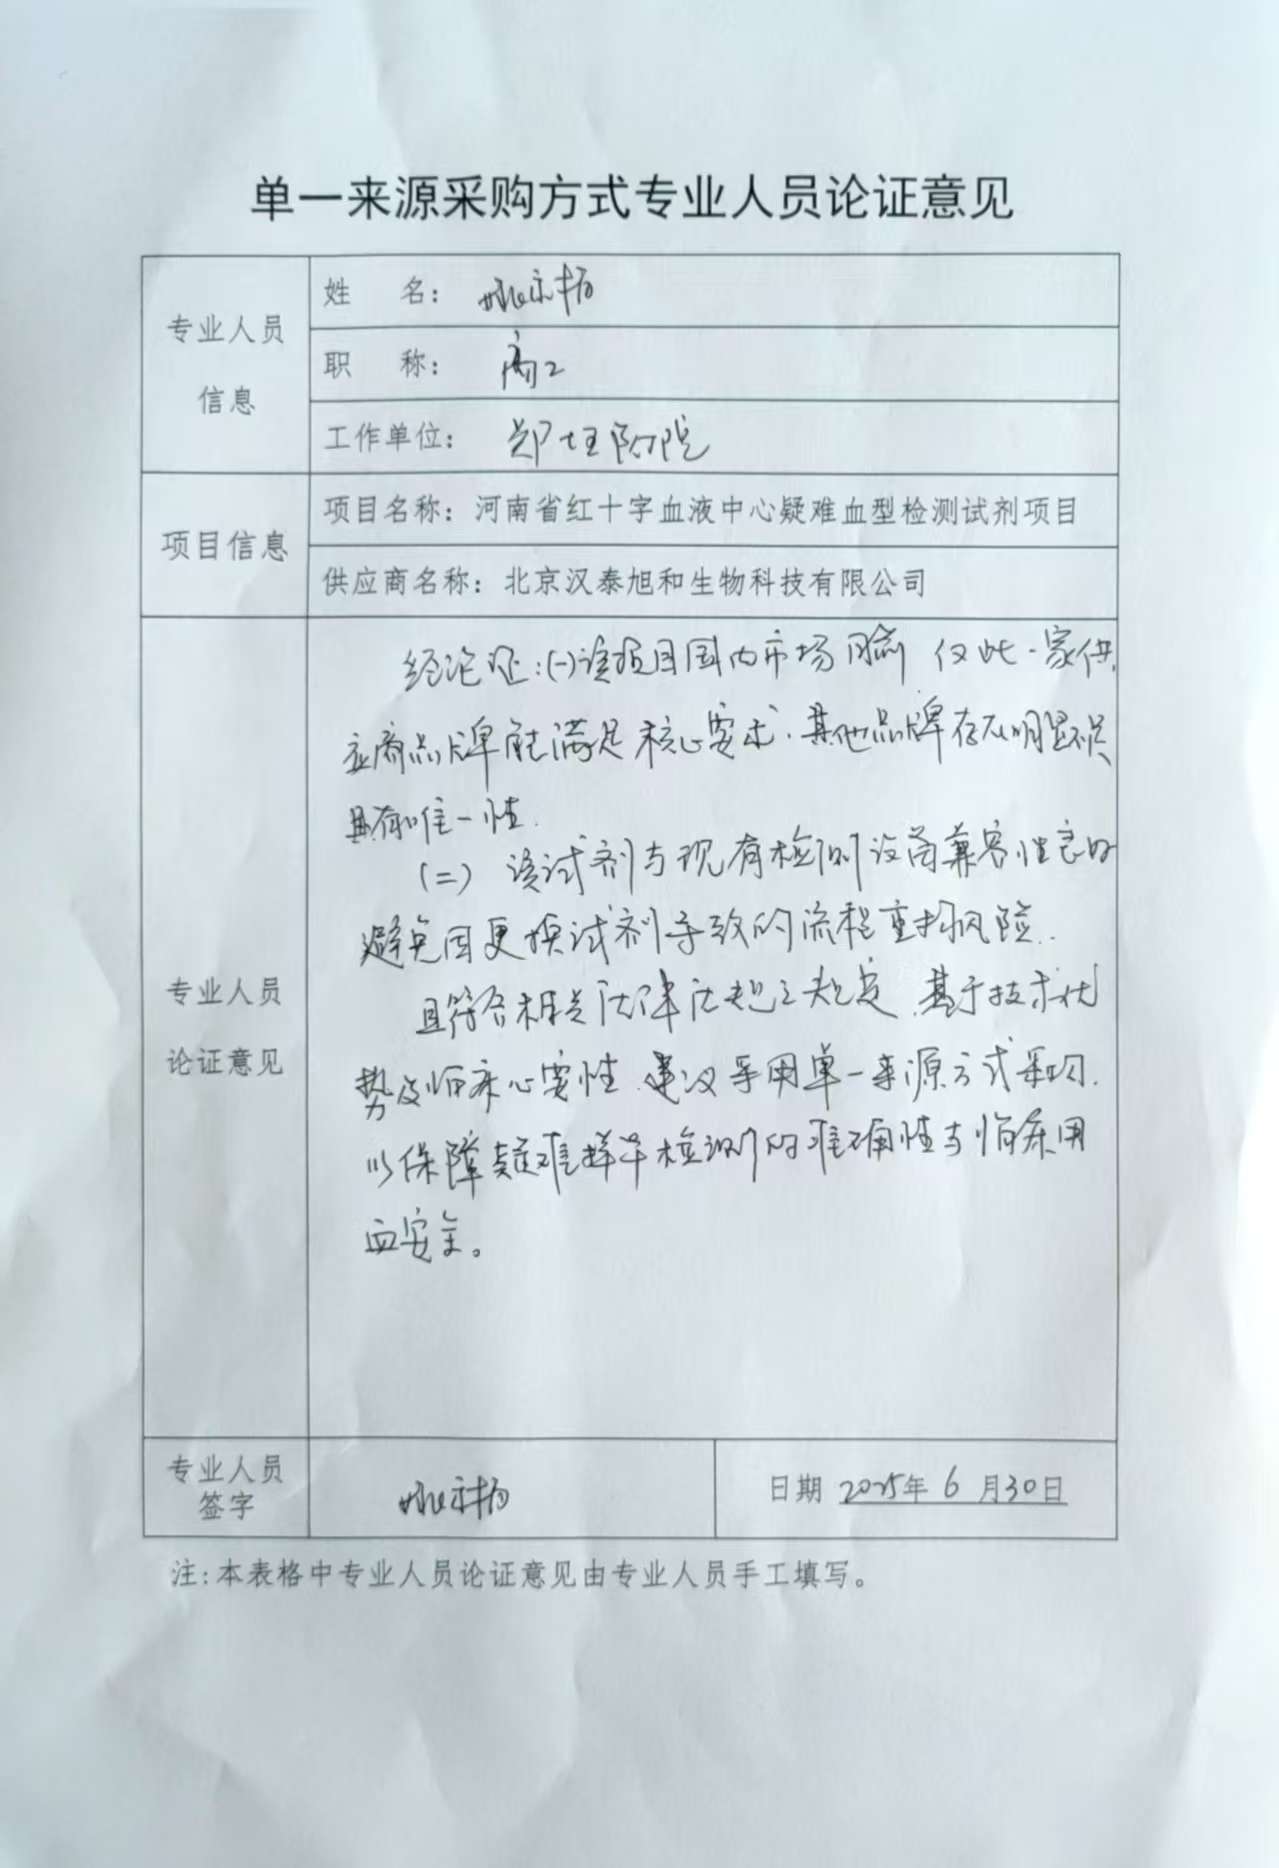 单一来源采购方式专业人员论证意见
专业人员
信息
姓 名：
职 称：高工
工作单位：
项目信息
项目名称：河南省红十字血液中心疑难血型检测试剂项目
供应商名称：北京汉泰旭和生物科技有限公司
专业人员
论证意见
经论证：(一)该项目国内市场 仅此一家供
应商品牌能满足核心要求.其他品牌存在明显
具有唯一性.
(二) 该试剂与现有检测设备兼容性良好
避免因更换试剂导致的流程重构风险.
且符合相关法律法规之规定.基于技术优
势及临床必要性.建议采用单一来源方式采购.
以保障疑难样本检测的准确性与临床用
血安全。
专业人员
签字
日期 2025年 6 月30日
注:本表格中专业人员论证意见由专业人员手工填写。